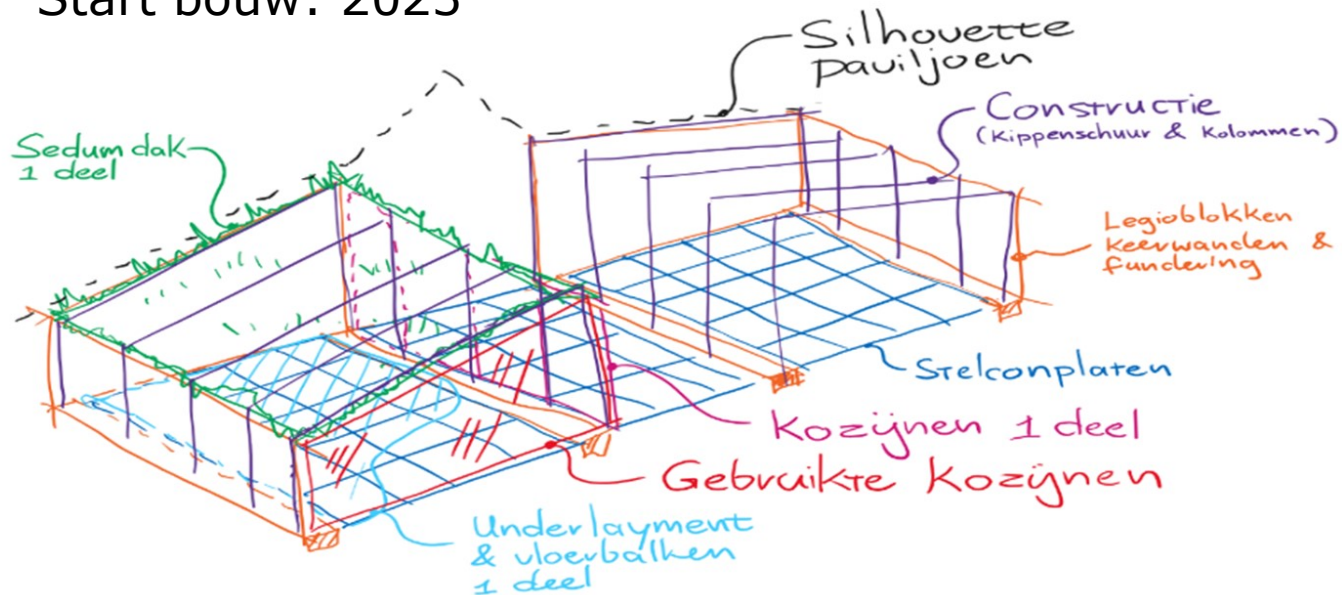 Start bouw: 2025
Silhouette
paviljoen
Constructie
(Kippenschuur & Kolommen)
Sedum dak
1 deel
Legioblokken
keerwanden &
fundering
Stelconplaten
Kozijnen 1 deel
Gebruikte Kozijnen
Underlayment
& vloerbalken
1 deel